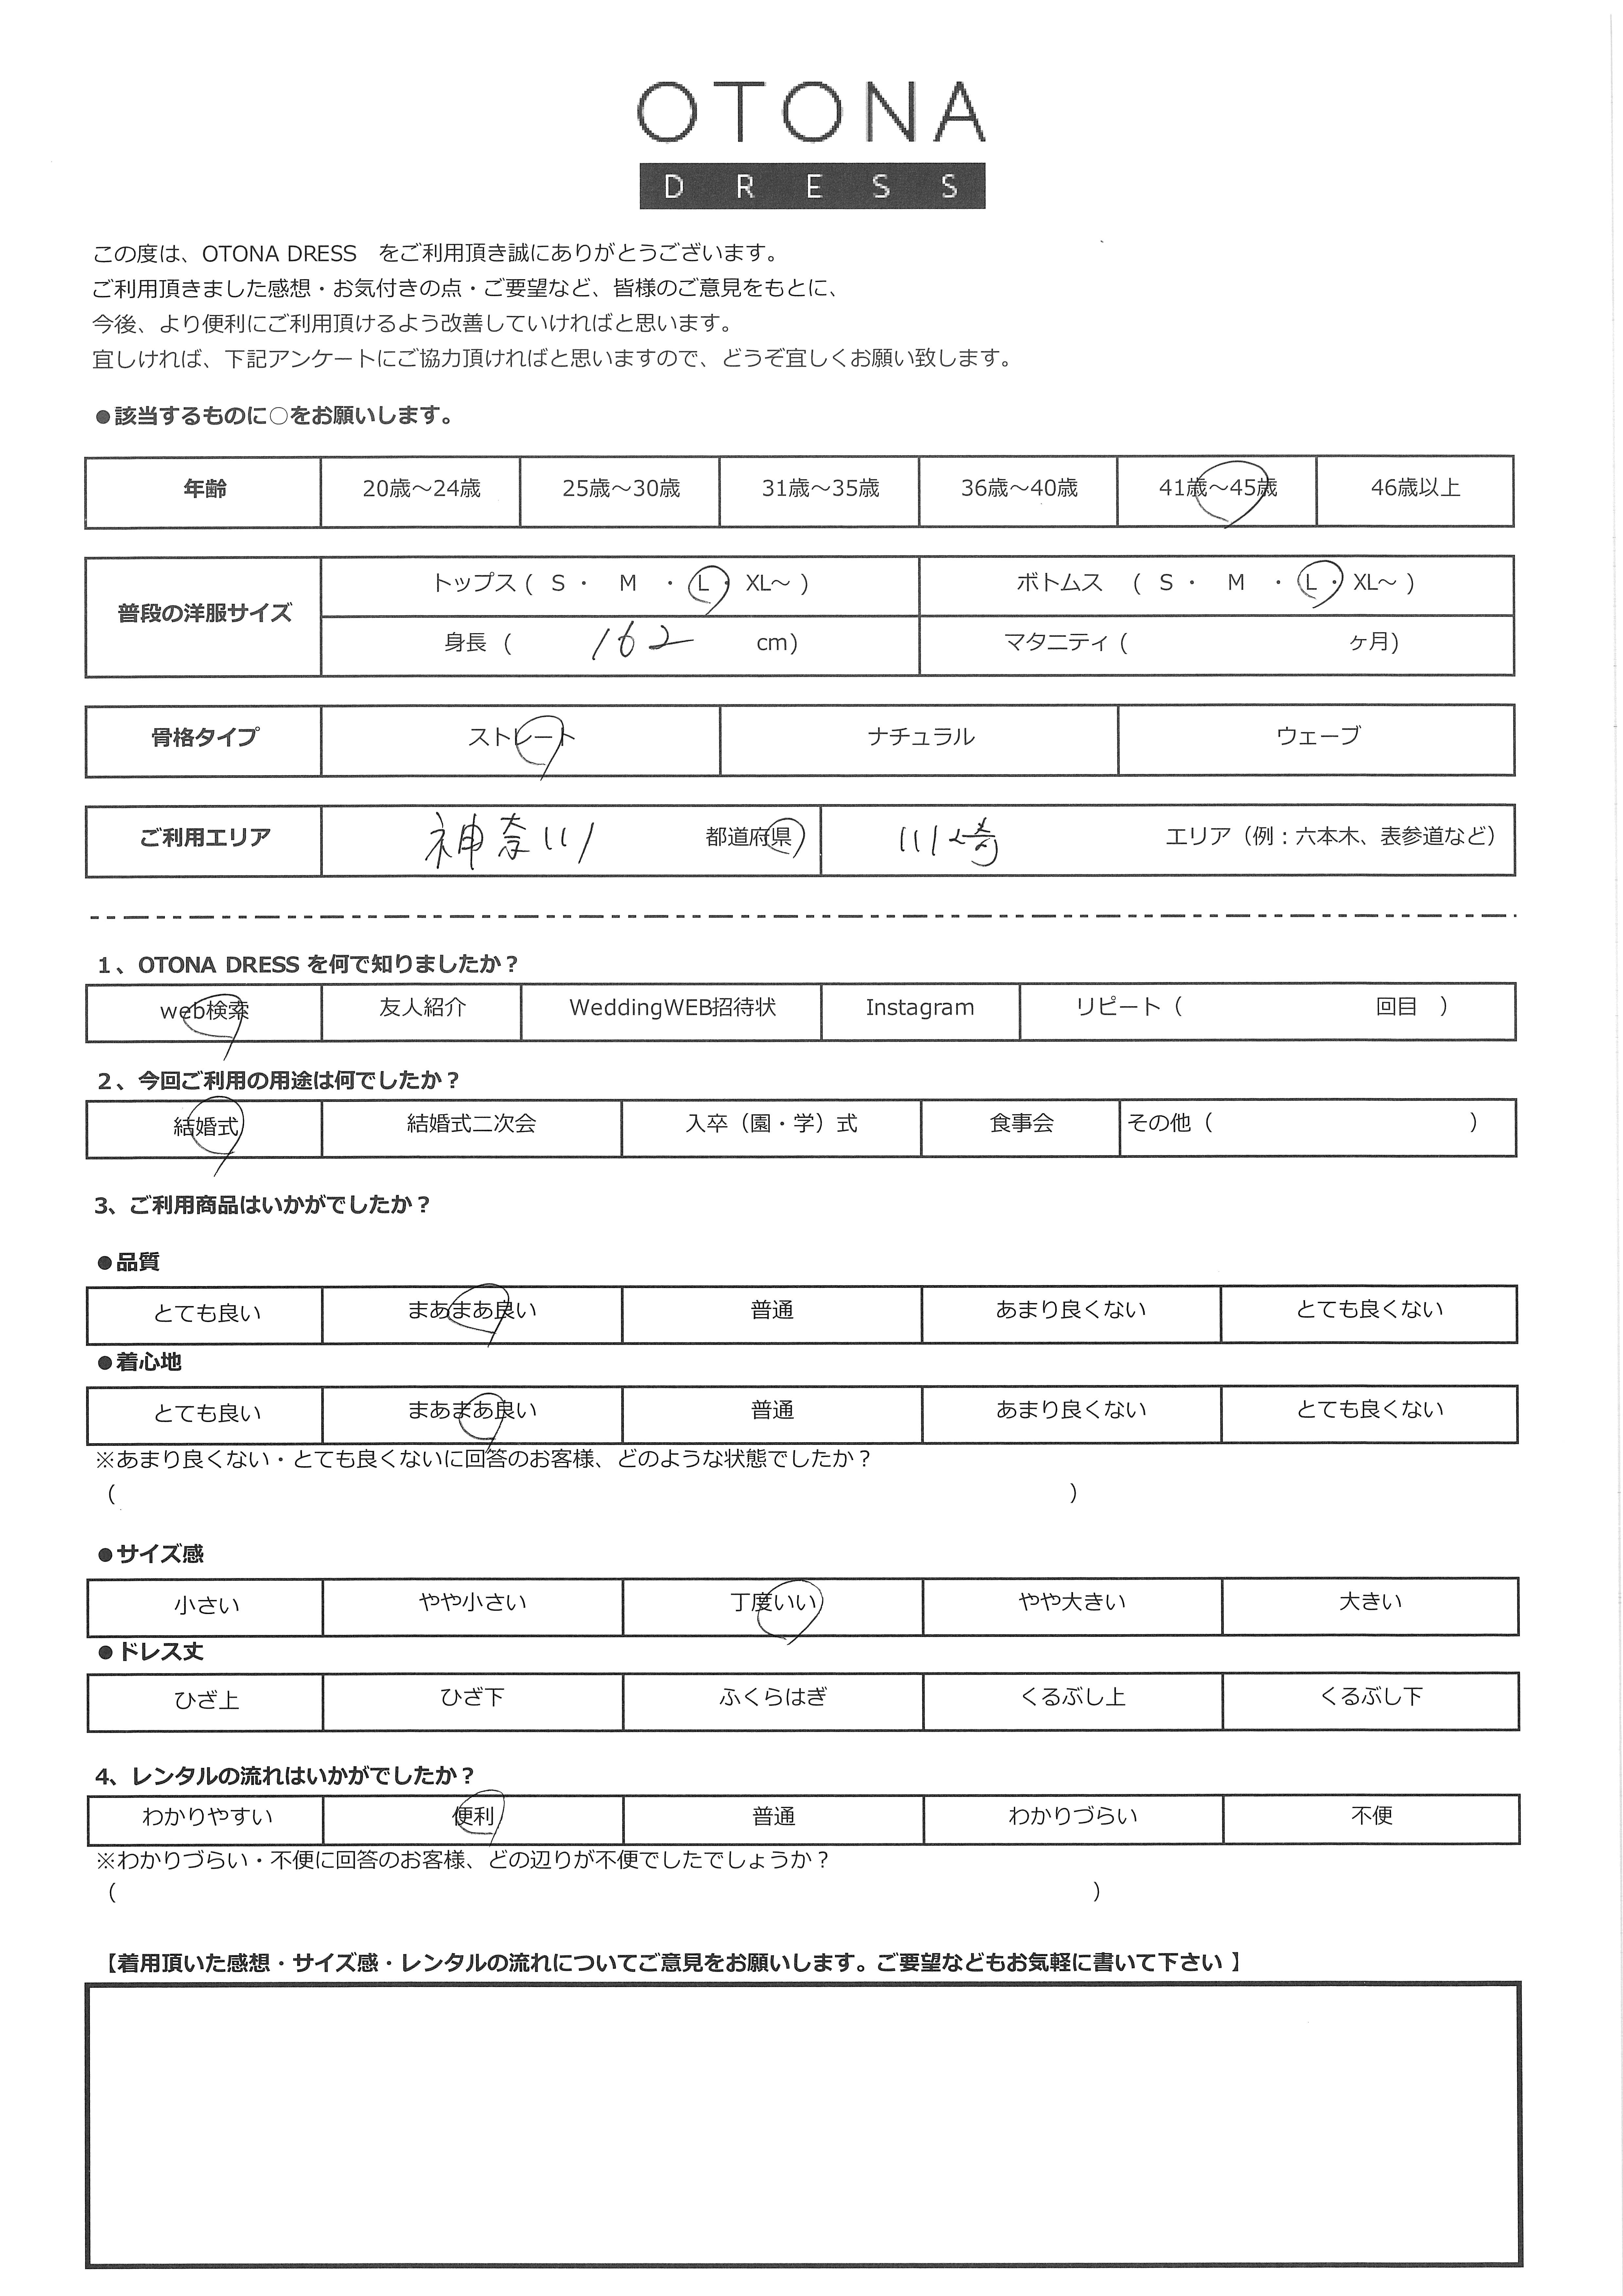 OTONA
DRESS
この度は、OTONA DRESS　をご利用頂き誠にありがとうございます。
ご利用頂きました感想・お気付きの点・ご要望など、皆様のご意見をもとに、
今後、より便利にご利用頂けるよう改善していければと思います。
宜しければ、下記アンケートにご協力頂ければと思いますので、どうぞ宜しくお願い致します。
●該当するものに○をお願いします。
年齢 20歳～24歳 25歳～30歳 31歳～35歳 36歳～40歳 41歳～45歳 46歳以上
普段の洋服サイズ トップス ( S ・ M ・ L ・ XL～ ) ボトムス ( S ・ M ・ L ・ XL～ )
身長 ( 162 cm) マタニティ ( ヶ月)
骨格タイプ ストレート ナチュラル ウェーブ
ご利用エリア 神奈川 都道府県 川崎 エリア（例：六本木、表参道など）
1、OTONA DRESS を何で知りましたか？
web検索 友人紹介 WeddingWEB招待状 Instagram リピート（ 回目 ）
2、今回ご利用の用途は何でしたか？
結婚式 結婚式二次会 入卒（園・学）式 食事会 その他（ ）
3、ご利用商品はいかがでしたか？
●品質
とても良い まあまあ良い 普通 あまり良くない とても良くない
●着心地
とても良い まあまあ良い 普通 あまり良くない とても良くない
※あまり良くない・とても良くないに回答のお客様、どのような状態でしたか？
（ ）
●サイズ感
小さい やや小さい 丁度いい やや大きい 大きい
●ドレス丈
ひざ上 ひざ下 ふくらはぎ くるぶし上 くるぶし下
4、レンタルの流れはいかがでしたか？
わかりやすい 便利 普通 わかりづらい 不便
※わかりづらい・不便に回答のお客様、どの辺りが不便でしたでしょうか？
（ ）
【着用頂いた感想・サイズ感・レンタルの流れについてご意見をお願いします。ご要望などもお気軽に書いて下さい 】